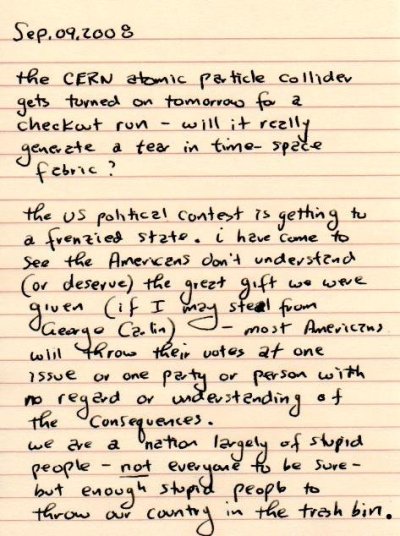 Sep.09.2008
the CERN atomic particle collider
gets turned on tomorrow for a
checkout run - will it really
generate a tear in time-space
fabric?
the US political contest is getting to
a frenzied state. i have come to
see the Americans don't understand
(or deserve) the great gift we were
given (if I may steal from
George Carlin) - most Americans
will throw their votes at one
issue or one party or person with
no regard or understanding of
the consequences.
we are a nation largely of stupid
people - not everyone to be sure -
but enough stupid people to
throw our country in the trash bin.